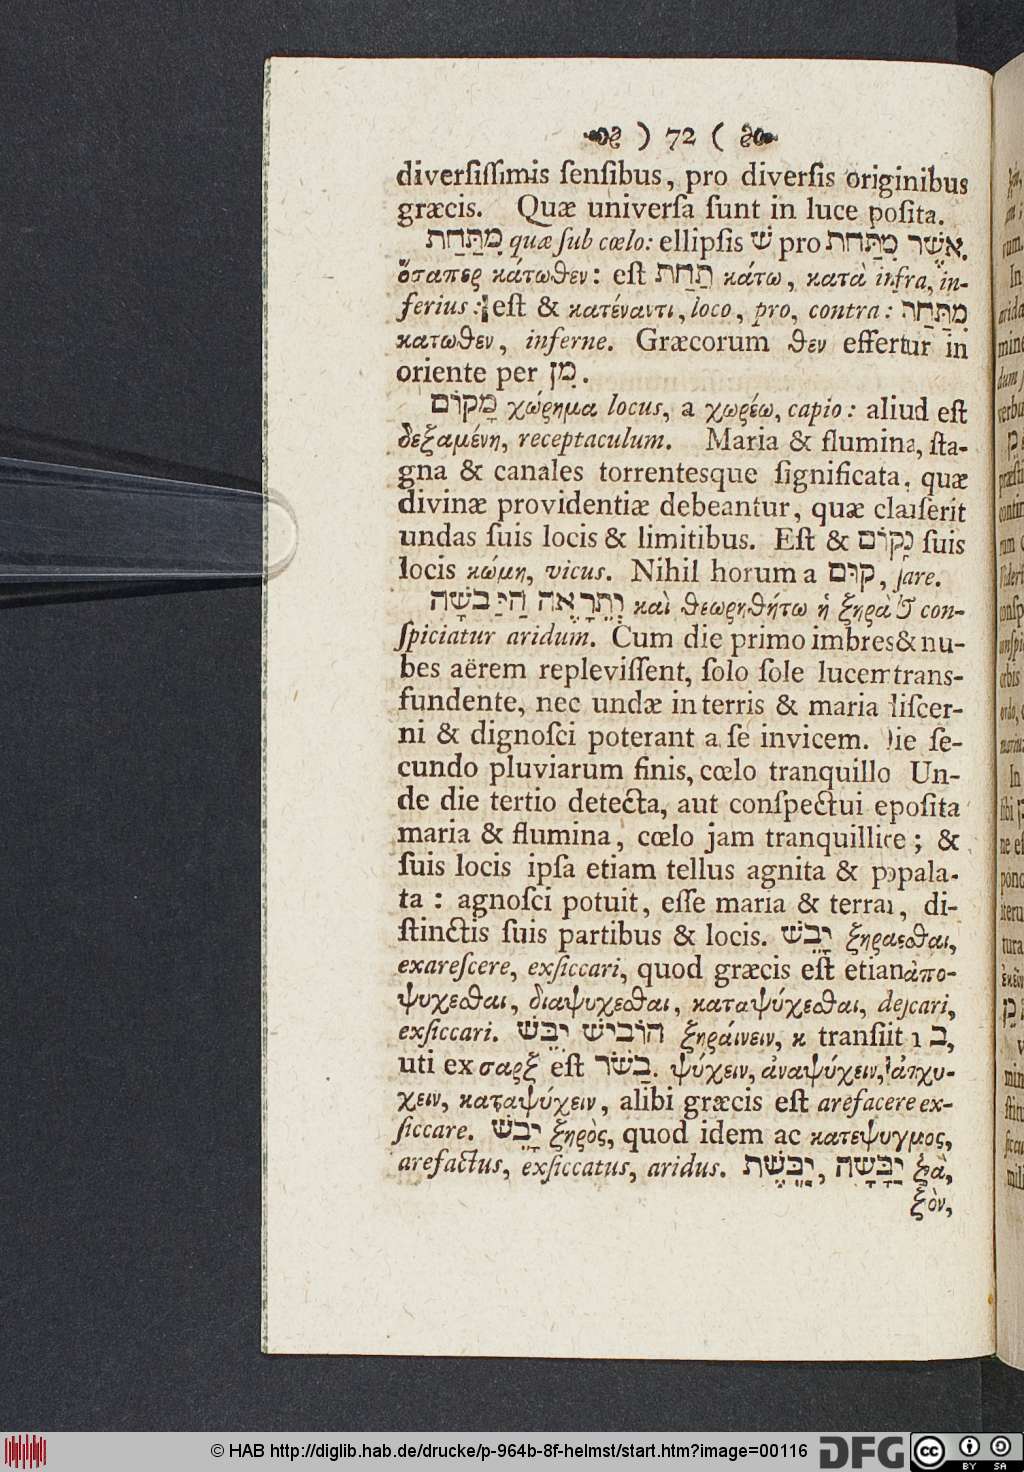 ) 72 (
diversissimis sensibus, pro diversis originibus
græcis. Quæ universa sunt in luce posita.
מִתַּחַת quæ sub cœlo: ellipsis שׁ pro אֲשֶׁר מִתַּחַת
ὅσαπερ κάτωθεν: est תַחַת κάτω, κατὰ infra, in-
ferius: est & κατέναντι, loco, pro, contra: מִתַּחַת
κατωθεν, inferne. Græcorum θεν effertur in
oriente per מִן.
מָקוֹם χώρημα locus, a χωρέω, capio: aliud est
δεξαμένη, receptaculum. Maria & flumina, sta-
gna & canales torrentesque significata, quæ
divinæ providentiæ debeantur, quæ clauserit
undas suis locis & limitibus. Est & מקוֹם suis
locis κώμη, vicus. Nihil horum a קוּם, stare.
וְתֵרָאֶה הַיַּבָּשָׁה καὶ θεωρηθήτω ἡ ξηρὰ con-
spiciatur aridum. Cum die primo imbres & nu-
bes aërem replevissent, solo sole lucem trans-
fundente, nec undæ in terris & maria discer-
ni & dignosci poterant a se invicem. Die se-
cundo pluviarum finis, cœlo tranquillo Un-
de die tertio detecta, aut conspectui eposita
maria & flumina, cœlo jam tranquilliore; &
suis locis ipsa etiam tellus agnita & propala-
ta: agnosci potuit, esse maria & terram, di-
stinctis suis partibus & locis. יָבֵשׁ ξηραεσθαι,
exarescere, exsiccari, quod græcis est etiam ἀπο-
ψυχεσθαι, διαψυχεσθαι, καταψύχεσθαι, desicari,
exsiccari. יִבֵּשׁ הוֹבִישׁ ξηράινειν, κ transiit in ב,
uti ex σαρξ est בַשׂר. ψύχειν, ἀναψύχειν, ἀποψυ-
χειν, καταψύχειν, alibi græcis est arefacere ex-
siccare. יָבֵשׁ ξηρὸς, quod idem ac κατεψυγμος,
arefactus, exsiccatus, aridus. יַבֶּשֶׁת, יַבָּשָׁה ξὰ,
ξὸν,
© HAB http://diglib.hab.de/drucke/p-964b-8f-helmst/start.htm?image=00116
DFG
cc
BY SA